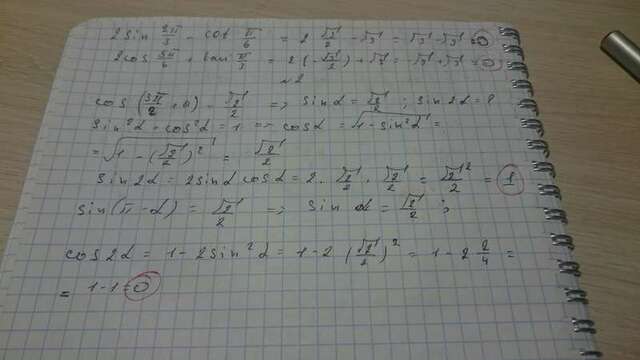 2 sin 2π/3 - cot π/6 = 2 √3/2 - √3 = √3 - √3 = 0
2 cos 5π/6 + tan π/3 = 2 (-√3/2) + √3 = -√3 + √3 = 0
~2
cos (3π/2 + α) = √2/2 => sin α = √2/2 ; sin 2α = ?
sin²α + cos²α = 1 => cos α = √(1 - sin²α) =
= √(1 - (√2/2)²) = √2/2
sin 2α = 2 sin α cos α = 2 · √2/2 · √2/2 = √2²/2 = 1
sin (π - α) = √2/2 => sin α = √2/2 ;
cos 2α = 1 - 2 sin²α = 1 - 2 (√2/2)² = 1 - 2 2/4 =
= 1 - 1 = 0